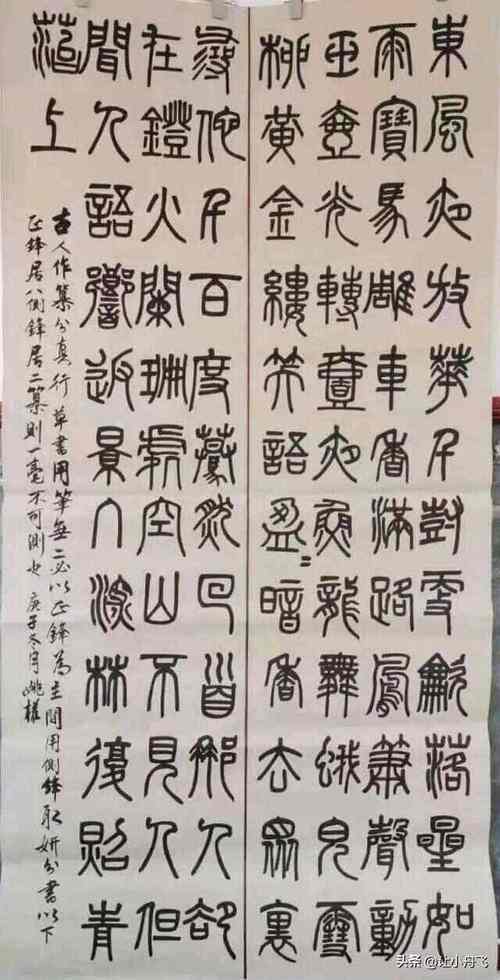 東風夜放華千尌更龡落星如
雨寶馬雕車香滿路鳳簫聲動
玉壺光轉壹夜魚龍舞蛾兒雪
柳黃金縷笑語盈=暗香去眾裏
尋他千百度驀然回首那人卻
在鐙火闌珊處空山不見人但
聞人語響返景入深林復照青
菭上
古人作篆分真行草書用筆無二必以正鋒為主間用側鋒取妍分書以下
正鋒居八側鋒居二篆則一毫不可測也 庚子冬月姚
头条